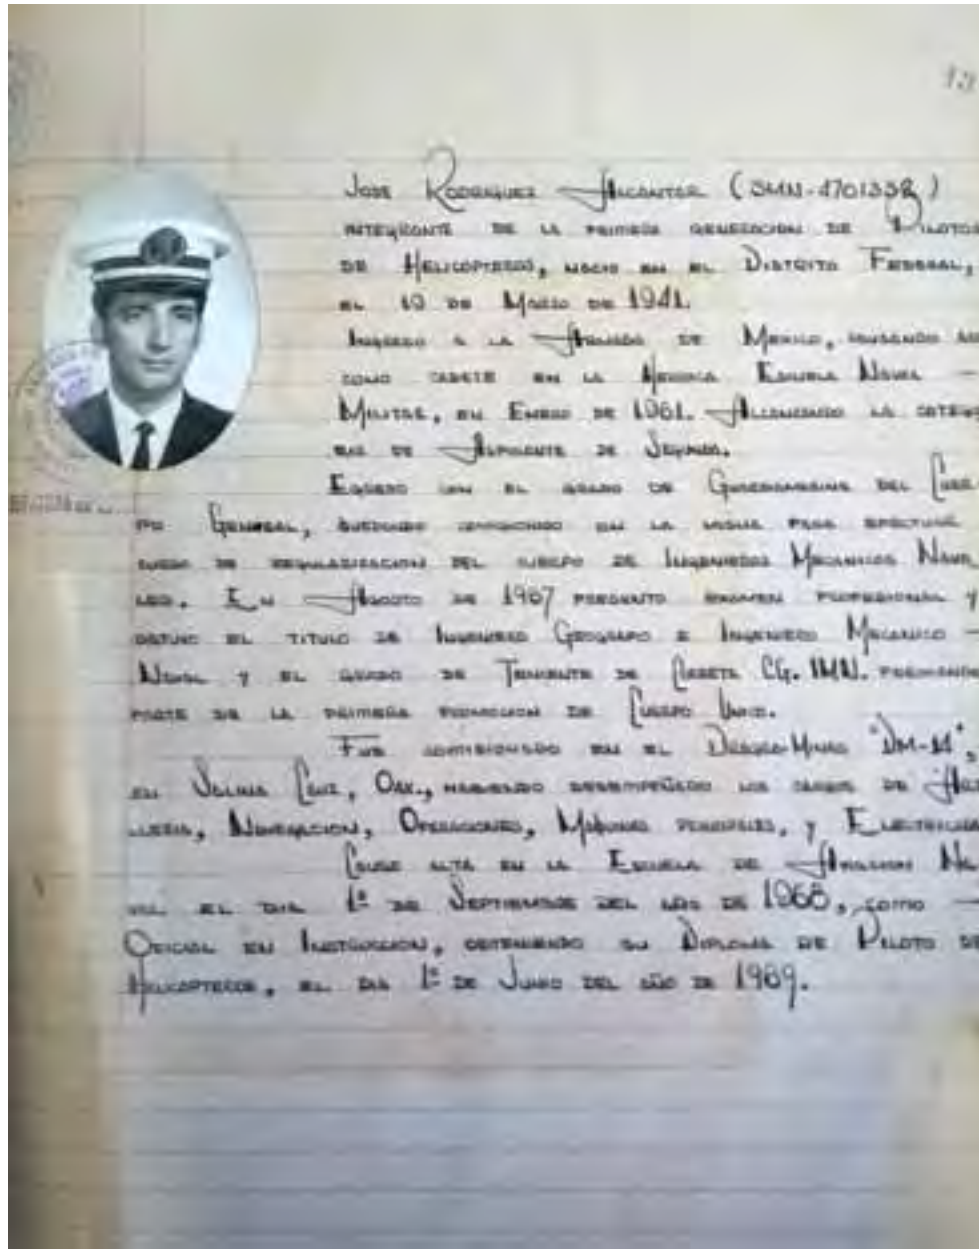 13
JOSE RODRIGUEZ ALCANTAR (SMN-4701338)
INTEGRANTE DE LA PRIMERA GENERACION DE PILOTOS
DE HELICOPTEROS, NACIO EN EL DISTRITO FEDERAL,
EL 19 DE MARZO DE 1941.
INGRESO A LA ARMADA DE MEXICO, CAUSANDO
COMO CADETE EN LA HEROICA ESCUELA NAVAL —
MILITAR, EN ENERO DE 1961. ALCANZANDO LA CATEGO
RIA DE ASPIRANTE DE SEGUNDA.
EGRESO CON EL GRADO DE GUARDIAMARINA DEL CUER
PO GENERAL, QUEDANDO COMISIONADO EN LA MISMA PARA EFECTUAR
CURSO DE REGULARIZACION DEL CUERPO DE INGENIEROS MECANICOS NAVA
LES. EN AGOSTO DE 1967 PRESENTO EXAMEN PROFESIONAL Y
OBTUVO EL TITULO DE INGENIERO GEOGRAFO E INGENIERO MECANICO —
NAVAL Y EL GRADO DE TENIENTE DE CORBETA CG. IMN. FORMANDO
PARTE DE LA PRIMERA PROMOCION DE CUERPO UNICO.
FUE COMISIONADO EN EL DRAGA-MINAS "DM-11",
EN SALINA CRUZ, OAX., HABIENDO DESEMPEÑADO LOS CARGOS DE ARTI
LLERIA, NAVEGACION, OPERACIONES, MAQUINAS PRINCIPALES, Y ELECTRICIDAD
CAUSE ALTA EN LA ESCUELA DE AVIACION NA
VAL EL DIA 1º DE SEPTIEMBRE DEL AÑO DE 1968, COMO —
OFICIAL EN INSTRUCCION, OBTENIENDO SU DIPLOMA DE PILOTO DE
HELICOPTEROS, EL DIA 1º DE JUNIO DEL AÑO DE 1969.